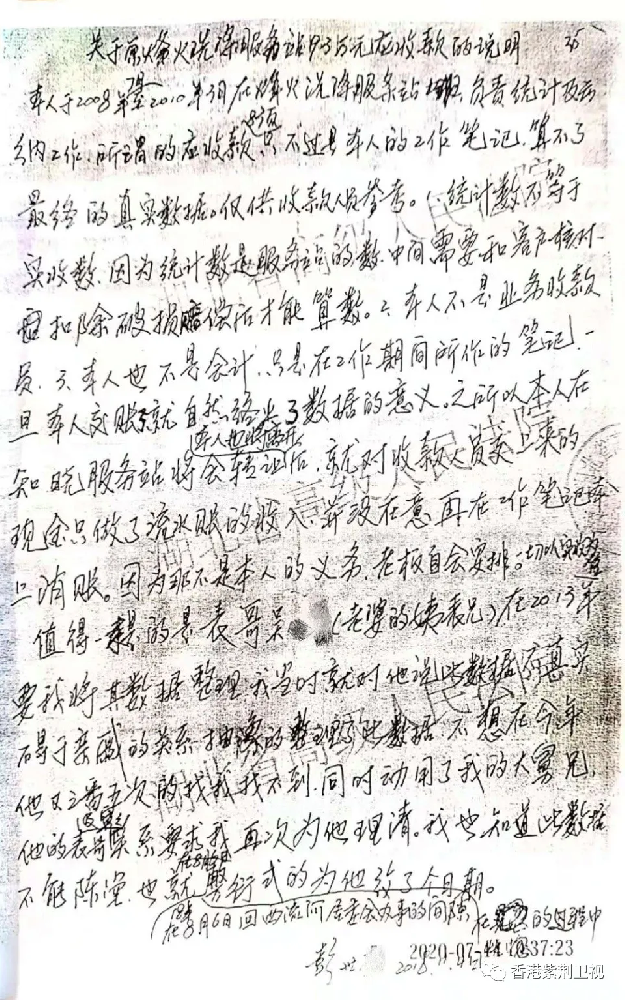 关于原烽火洗涤服务站93万元应收款的说明
本人于2008年至2010年3月在烽火洗涤服务站 负责统计及出
纳工作,所谓的应收款只不过是本人的工作笔记,算不了
最终的真实数据。仅供收款人员参考。1、统计数不等于
实收数,因为统计数是服务站的数,中间需要和客户核对
扣除破损赔偿后才能算数。2、本人不是业务收款
员,3、本人也不是会计,只是在工作期间所作的笔记,一
旦本人交账,就自然络失了数据的意义。之所以本人在
知晓服务站将会转让后,就对收款人员交上来的
现金只做了流水账的收入,并没在意再在工作笔记本
上消账。因为那不是本人的义务,老板自会安排。
值得一提的是表哥吴 (老婆的姨表兄)在2013年
要我将其数据整理,我当时就对他说此数据不真实
碍于亲戚的关系 的整理了此数据,不想在今年
他又三番五次的找我找不到,同时动用了我的大舅兄,
他的表哥关系要求我再次为他理清。我也知道此数据
不能陈堂,也就敷衍式的为他给了个日期。
在8月6日回西流河居委会办事的间隙 在 的过程中
彭世 2018
2020-07- 37:23
香港紫荆卫视